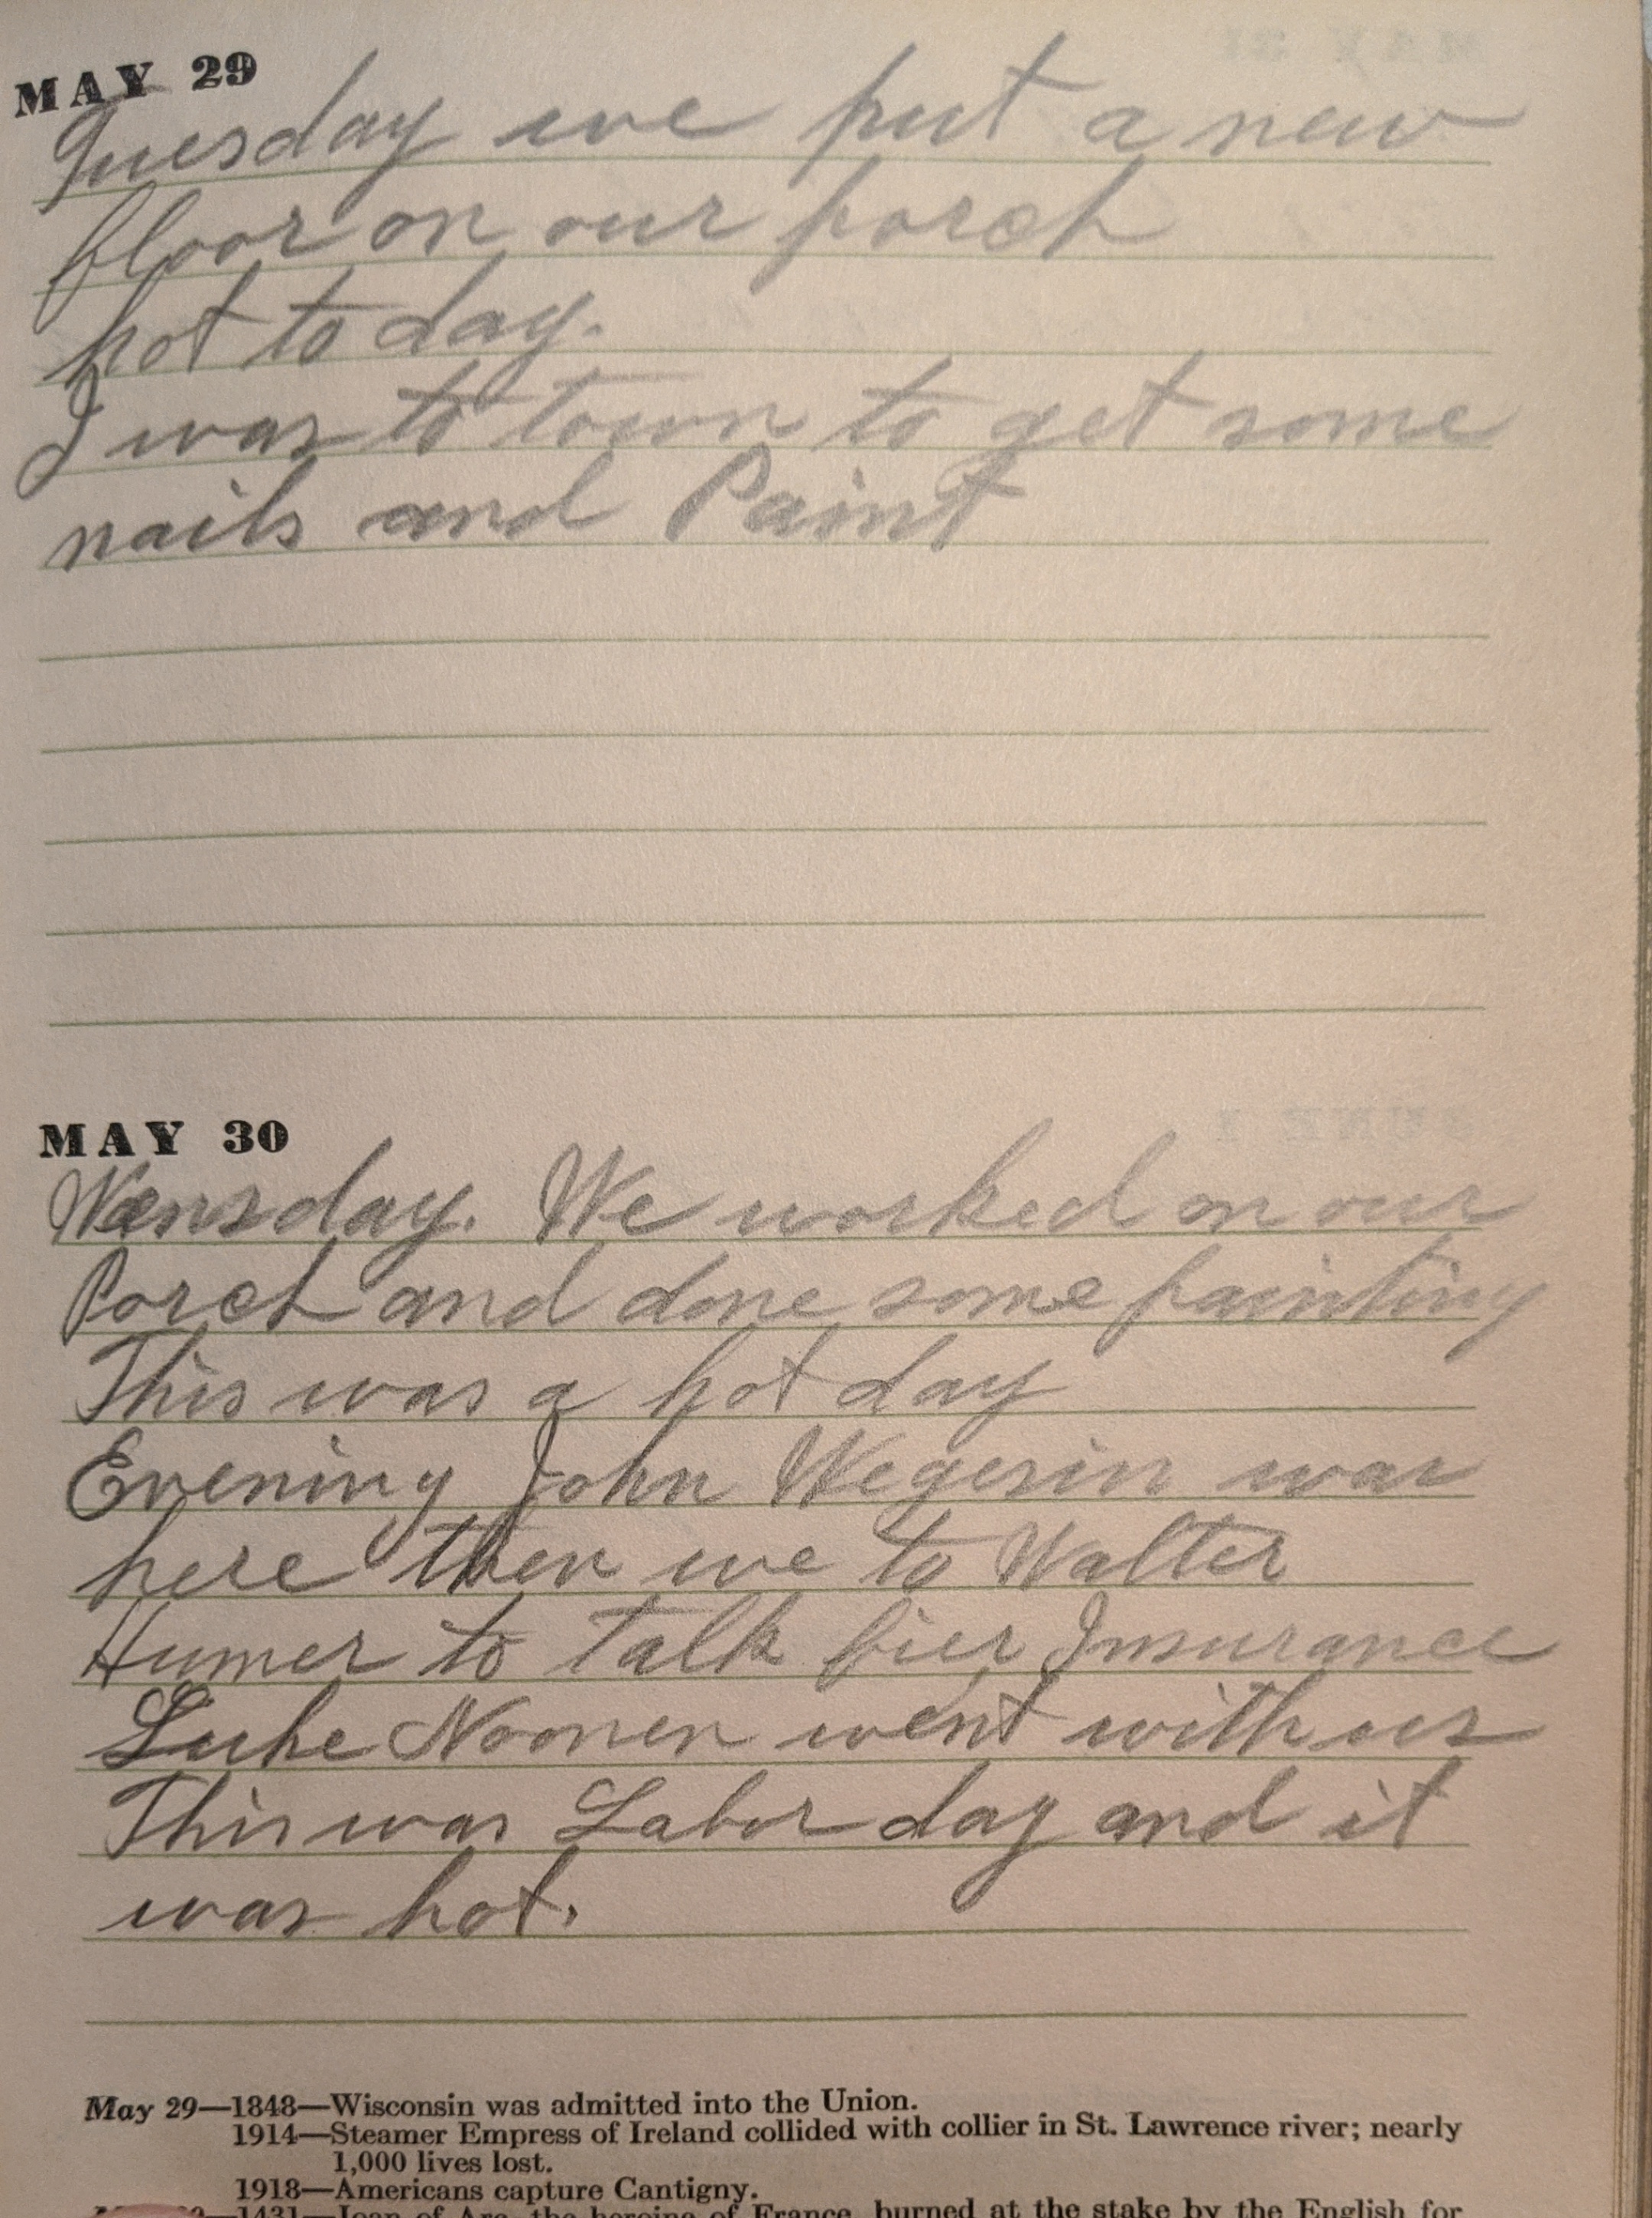 MAY 29
Tuesday we put a new
floor on our porch
hot to day.
I was to town to get some
nails and Paint
MAY 30
Wensday. We worked on our
Porch and done some painting
This was a hot day
Evening John Wegesin was
here then we to Walter
Humer to talk fier Insurance
Luke Noonen went with us
This was Labor day and it
was hot.
May 29—1848—Wisconsin was admitted into the Union.
1914—Steamer Empress of Ireland collided with collier in St. Lawrence river; nearly
1,000 lives lost.
1918—Americans capture Cantigny.
1431—Joan of Arc, the heroine of France, burned at the stake by the English for